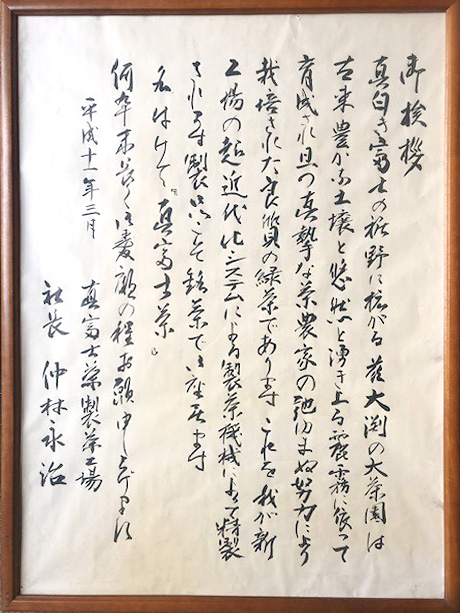 御挨拶
真白き富士の裾野に拡がる茲大渕の大茶園は
古来豊かな土壌と悠然と湧き上る霧に依って
育成され且つ真摯な茶農家の弛ゆまぬ努力により
栽培された良質の緑茶であります これを我が新
工場の超近代化システムによる製茶機械によって精製
される製品こそ銘茶で御座居ます
名付けて『真富士茶』
何卒末長く御愛顧の程お願申し上げます
平成十一年三月
真富士茶製茶工場
社長 仲林永治